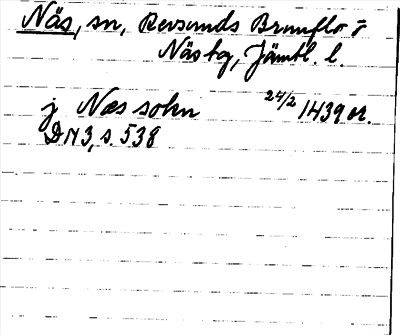 Näs, sn, Revsunds Brunflo o
Näs tg, Jämtl. l.
j Næs sokn 24/2 1439 or.
DN 3, s. 538